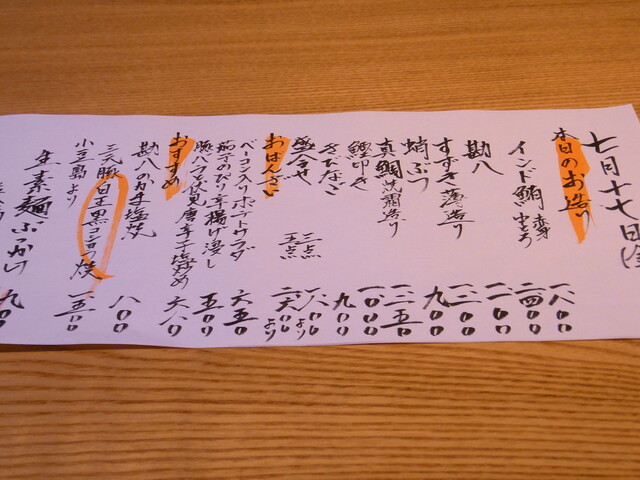 七月十七日金
本日のお造り
インド鮪 赤身 一八〇〇
中とろ 二四〇〇
勘八 一二〇〇
すずき薄造り 一二〇〇
蛸ぶつ 九〇〇
真鯛洗薄造り 一二五〇
鰹叩き 一〇〇〇
きびなご 九〇〇
盛合せ 三点 一八〇〇より
五点 二六〇〇より
おばんざい
ベーコン入りポテトサラダ 六五〇
茄子のぴり辛揚げ浸し 五五〇
豚バラと伏見唐辛子塩炒め 六八〇
おすすめ
勘八のかま塩焼 八〇〇
三元豚
小豆島より
生素麺ぶっかけ 九〇〇